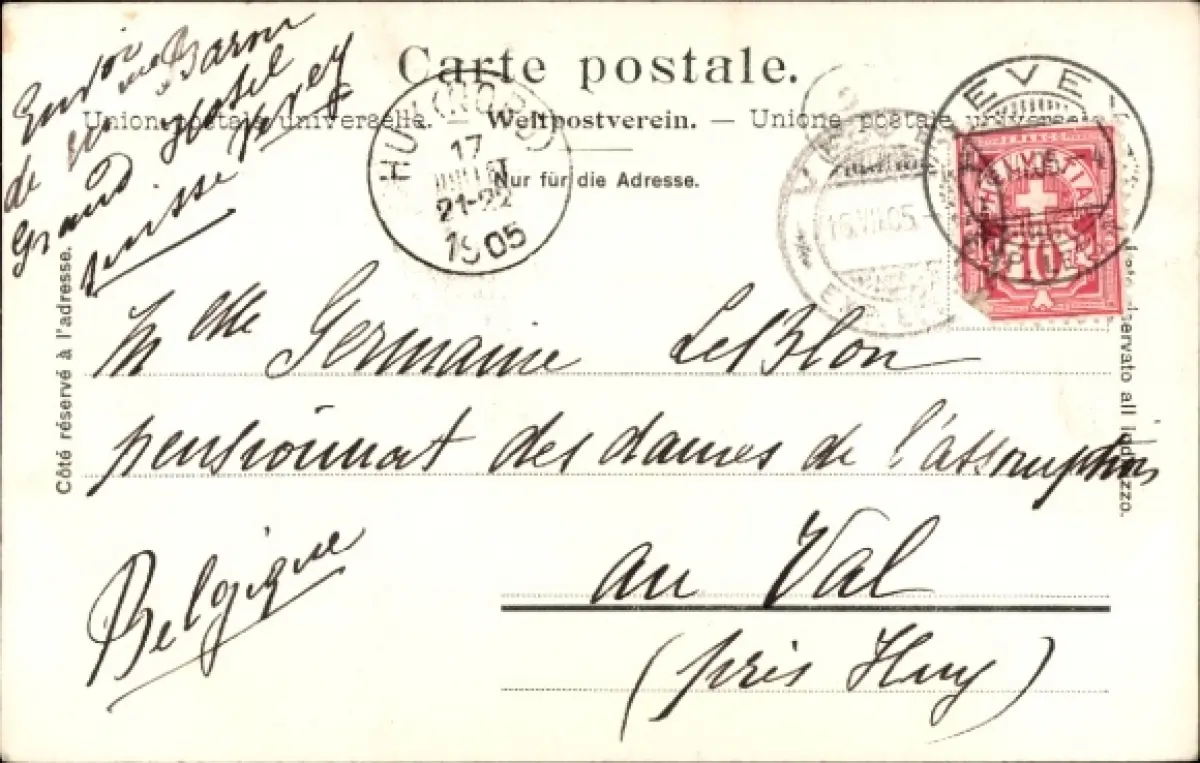 Envoi
de Mme Baron
Grand Hotel
Vevey
Suisse
Carte postale.
Union postale universelle. — Weltpostverein. — Unione postale universale
Nur für die Adresse.
HUY (NORD)
17
JUILLET
21-22
1905
16.VII.05.
VEVEY
HELVETIA
FRANCO
10
Côté réservé à l'adresse.
Mlle Germaine LeBlon
pensionnat des dames de l'assomption
au Val
(près Huy)
Belgique
Lato riservato all indirizzo.